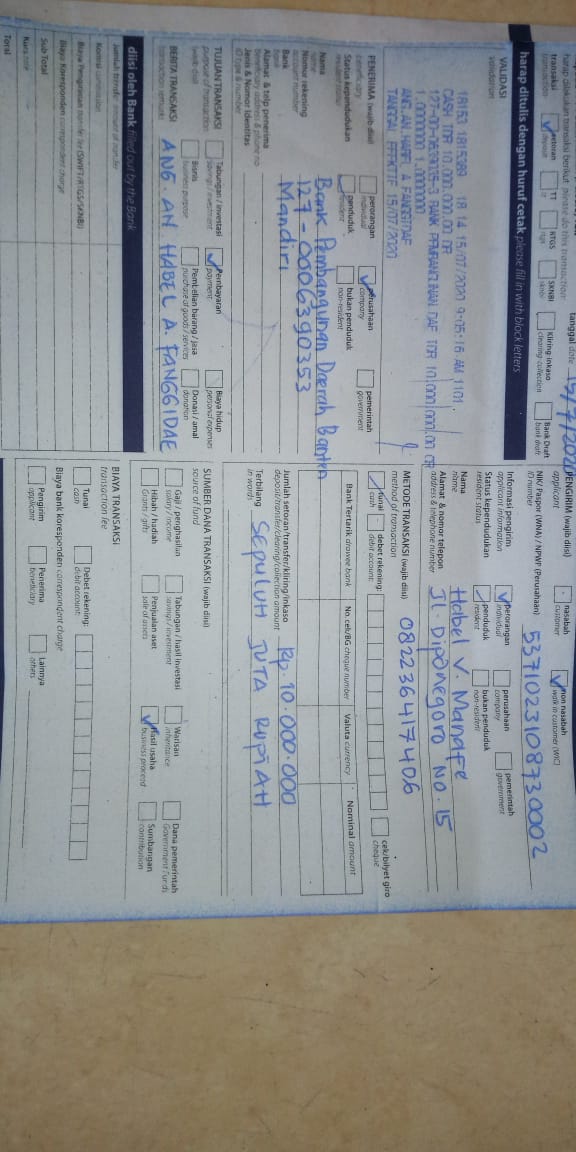 harap dilakukan transaksi berikut please do this transaction:
tanggal date 15/7/2020
transaksi transaction
setoran deposit
TT tt
RTGS rtgs
SKNBI sknbi
Kliring-inkaso clearing-collection
Bank Draft bank draft
harap ditulis dengan huruf cetak please fill in with block letters
VALIDASI
validation
18153 1815389 18 14 15/07/2020 9:05:16 AM 1101.
CASH IDR 10,000,000.00 DR
TANGGAL EFEKTIF 15/07/2020
PENERIMA (wajib diisi)
beneficiary
perorangan individual
perusahaan company
pemerintah government
Status kependudukan
resident status
penduduk resident
bukan penduduk non-resident
Nama name
Bank Pembangunan Daerah Banten
Nomor rekening account number
127-0006390353
Bank bank
Mandiri
Alamat & telp penerima
beneficiary address & phone no
Jenis & Nomor Identitas
ID type & number
TUJUAN TRANSAKSI
purpose of transaction
(wajib diisi)
Tabungan / investasi savings / investment
Pembayaran payment
Biaya hidup personal expenses
Bisnis business purpose
Pembelian barang / jasa purchase of goods / services
Donasi / amal donation
BERITA TRANSAKSI
transaction remarks
ANG. AN HABEL A. FANGGIDAE
diisi oleh Bank filled out by the Bank
Jumlah transfer amount of transfer
Komisi
Biaya Pengiriman transfer fee (SWIFT/RTGS/SKNBI)
Biaya Koresponden correspondent charge
Sub Total
Kurs rate
Total
PENGIRIM (wajib diisi)
applicant
nasabah customer
non nasabah walk in customer (WIC)
NIK/ Paspor (WNA) / NPWP (Perusahaan)
ID number
5371023108730002
Informasi pengirim
applicant information
perorangan individual
perusahaan company
pemerintah government
Status kependudukan
resident status
penduduk resident
bukan penduduk non-resident
Nama name
Habel V. Manafe
Alamat & nomor telepon
address & telephone number
Jl. Diponegoro No. 15
082236417406
METODE TRANSAKSI (wajib diisi)
method of transaction
tunai cash
debet rekening: debit account:
cek/bilyet giro cheque
Bank Tertarik drawee bank
No. cek/BG cheque number
Valuta currency
Nominal amount
Jumlah setoran/transfer/kliring/inkaso
deposit/transfer/clearing/collection amount
Rp. 10.000.000
Terbilang in words
SEPULUH JUTA RUPIAH
SUMBER DANA TRANSAKSI (wajib diisi)
source of fund
Gaji / penghasilan salary / income
Tabungan / hasil investasi savings / investment
Warisan inheritance
Dana pemerintah Government Funds
Hibah / hadiah Grants / gifts
Penjualan aset sale of assets
Hasil usaha business proceed
Sumbangan contribution
BIAYA TRANSAKSI
transaction fee
Tunai cash
Debet rekening: debit account:
Biaya bank koresponden correspondent charge
Pengirim applicant
Penerima beneficiary
Lainnya others